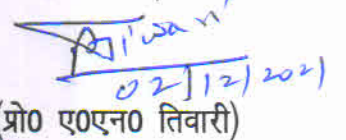 02/12/2021
(प्रो0 ए0एन0 तिवारी)